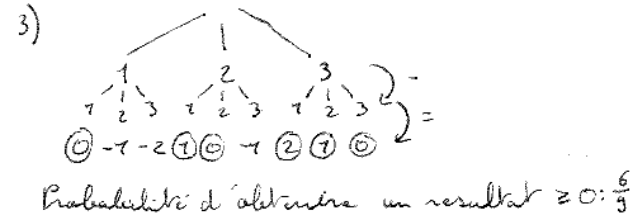 3)
1 2 3 -
1 2 3 1 2 3 1 2 3 =
0 -1 -2 1 0 -1 2 1 0
Probabilité d'obtenire un resultat ≥ 0 : 6/9